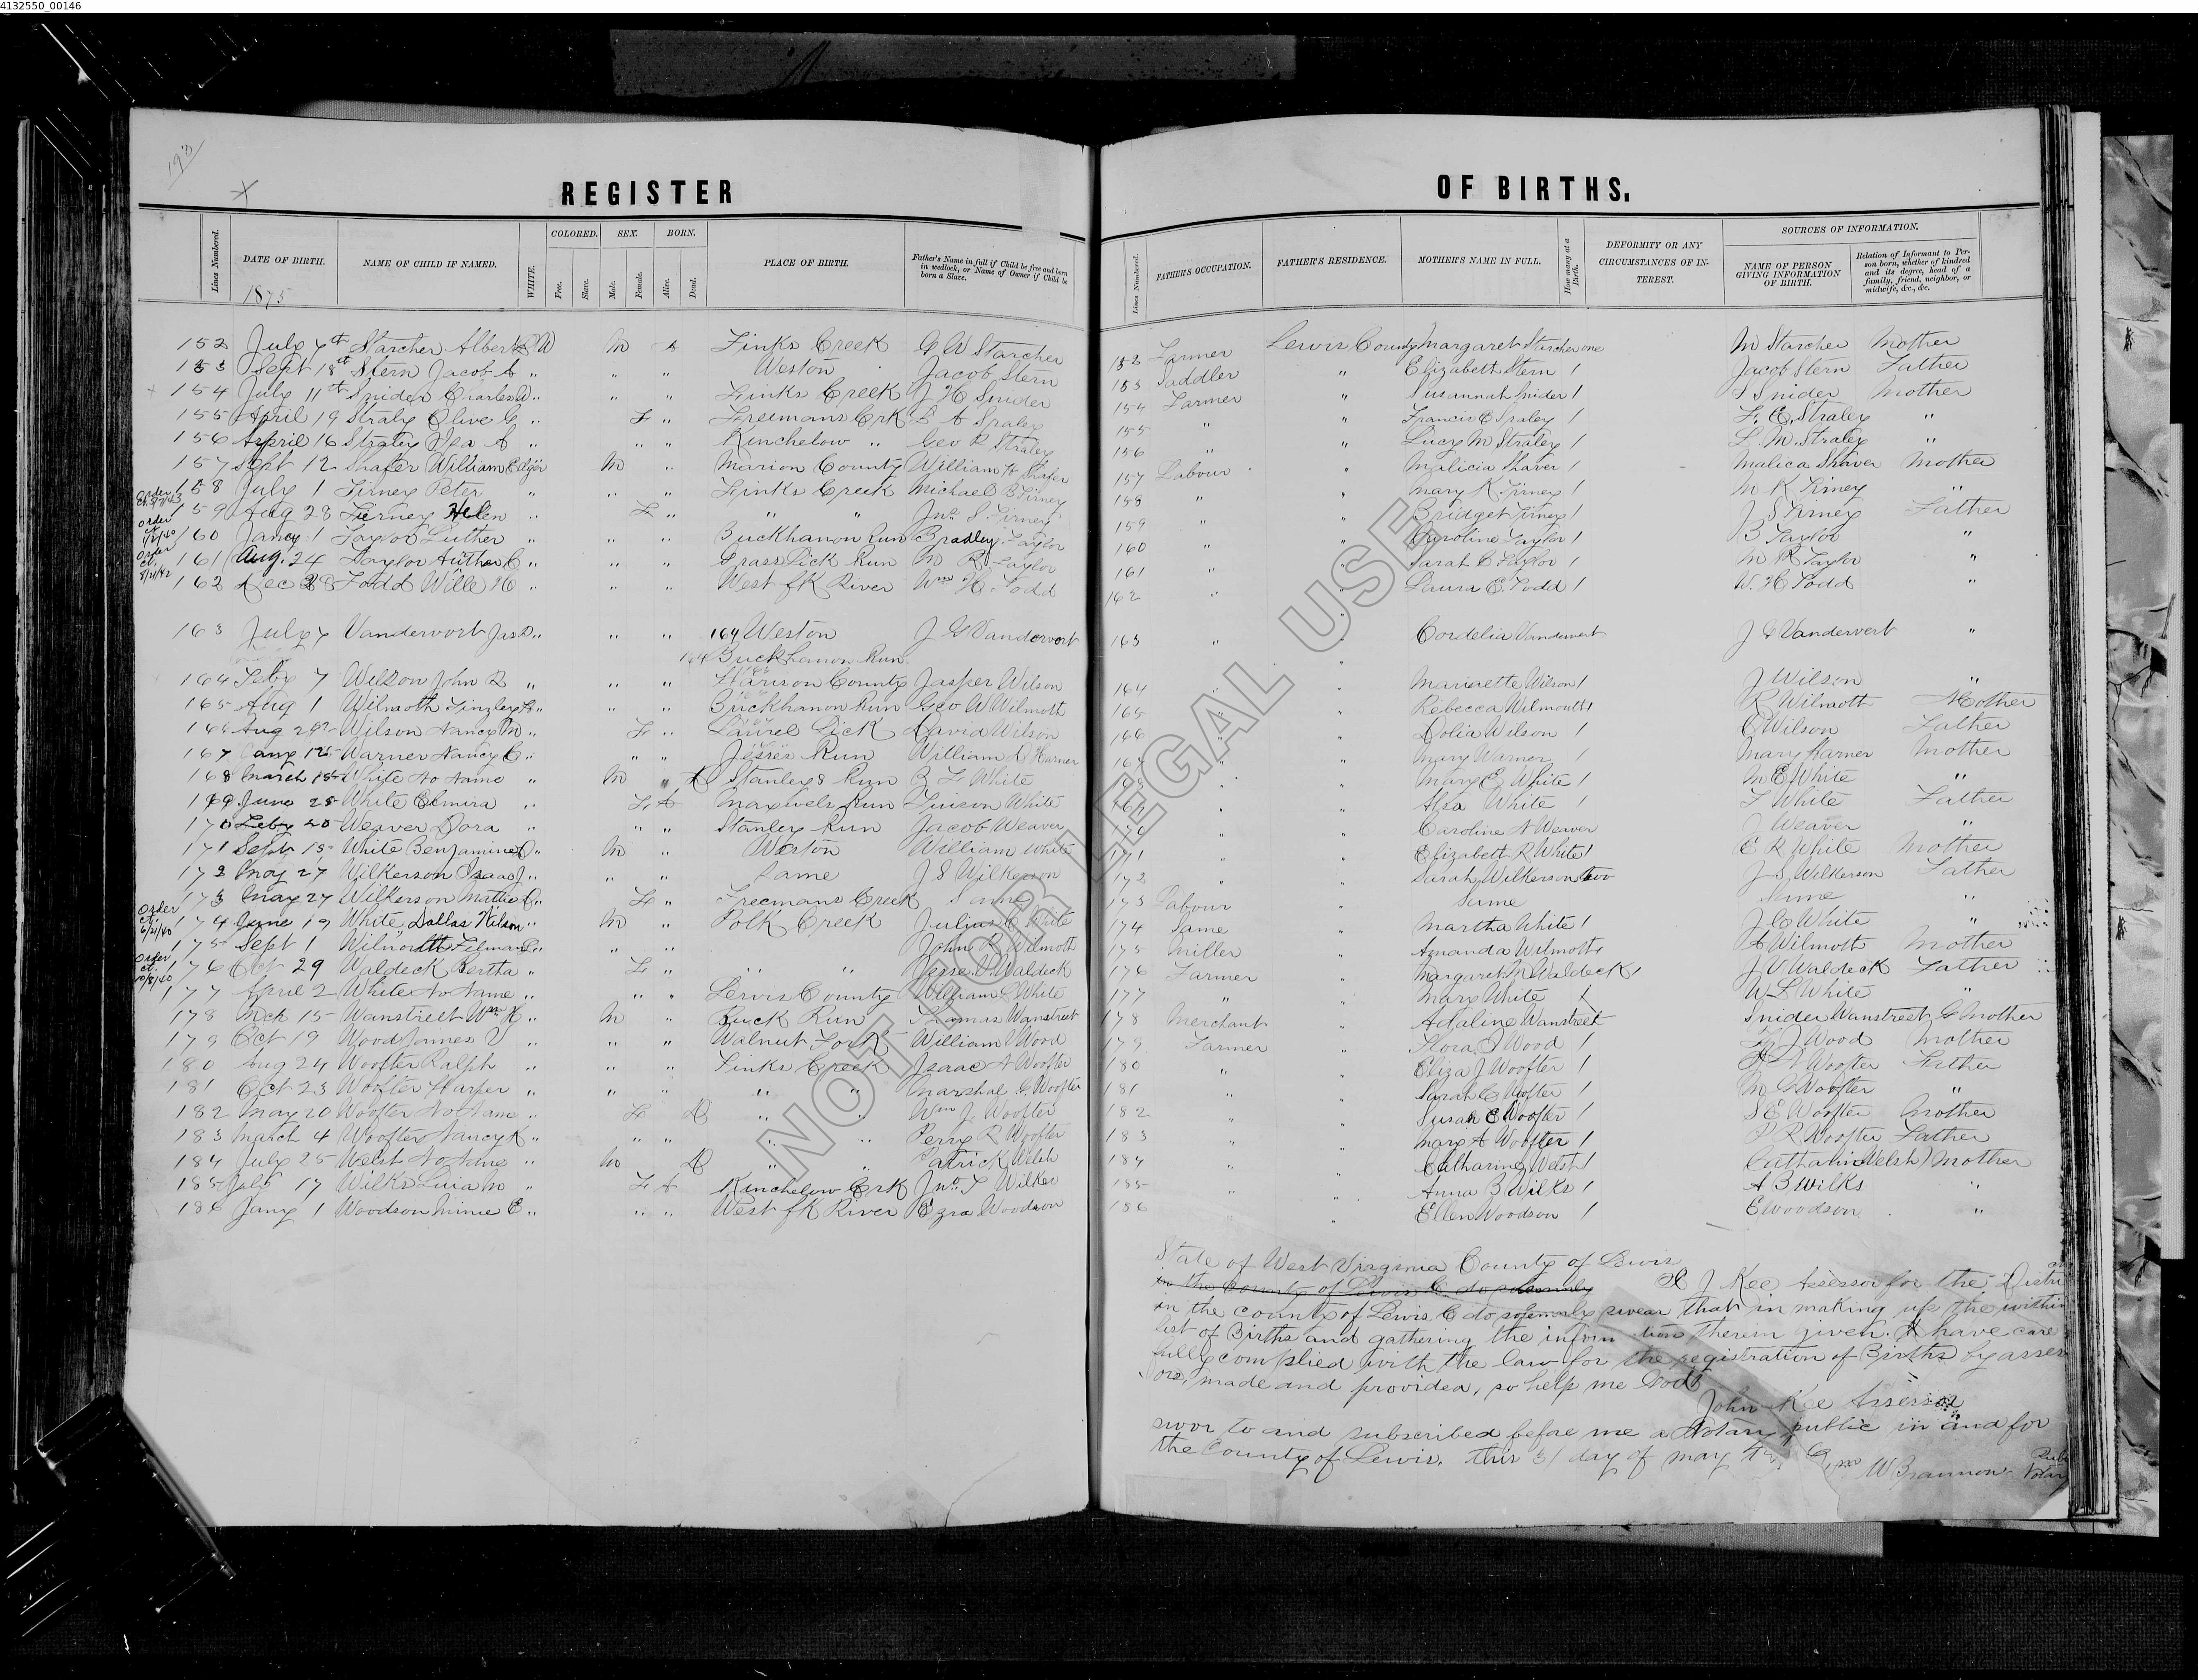 4132550_00146
190
X
REGISTER
OF BIRTHS.
Lines Numbered. DATE OF BIRTH. NAME OF CHILD IF NAMED. WHITE. COLORED. Free. Slave. SEX. Male. Female. BORN. Alive. Dead. PLACE OF BIRTH. Father's Name in full if Child be free and born in wedlock, or Name of Owner if Child be born a Slave.
Lines Numbered. FATHER'S OCCUPATION. FATHER'S RESIDENCE. MOTHER'S NAME IN FULL. How many at a Birth. DEFORMITY OR ANY CIRCUMSTANCES OF INTEREST. SOURCES OF INFORMATION. NAME OF PERSON GIVING INFORMATION OF BIRTH. Relation of Informant to Person born, whether of kindred and its degree, head of a family, friend, neighbor, or midwife, &c., &c.
1875
152 July 7th Starcher Albert W M A Finks Creek G W Starcher 152 Farmer Lewis County Margaret Starcher one M Starcher Mother
153 Sept 18th Stern Jacob A " " " Weston Jacob Stern 153 Saddler " Elizabeth Stern 1 Jacob Stern Father
154 July 11th Snider Charles W " " " Finks Creek J H Snider 154 Farmer " Susannah Snider 1 S Snider Mother
155 April 19 Straly Olive G " F " Freemans Crk S A Spraley 155 " " Francis E Spraley 1 F. E. Straley "
156 April 16 Straley Isa A " " " Kinchelow " Geo R Straley 156 " " Lucy M Straley 1 L. M. Straley "
157 Sept 12 Shafer William Edgar " M " Marion County William H Shafer 157 Labour " Malicia Shaver 1 Malica Shaver Mother
158 July 1 Tirney Peter " " " Finks Creek Michael B Tirney 158 " " Mary K. Tirney 1 M K Tirney "
159 Aug 28 Tierney Helen " F " " " Jno. S Tirney 159 " " Bridget Tirney 1 J S Tirney Father
Order Ct. 1/2/40 160 Jany 1 Taylor Luther " " " Buckhanon Run Bradley Taylor 160 " " Caroline Taylor 1 B Taylor "
Order ct. 8/21/42 161 Aug. 24 Taylor Author C " " " Grass Lick Run M R Taylor 161 " " Sarah C Taylor 1 M R Taylor "
162 Dec 28 Todd Wille H " " " West fk River Wm H Todd 162 " " Laura E. Todd 1 W. H Todd "
163 July 7 Vandervort Jas D " " " 164 Weston J G Vandervort 163 " " Cordelia Vandervert J G Vandervert "
164 Buckhanon Run "
164 Feby 7 Wilson John " " " Harrison County Jasper Wilson 164 " " Mariaette Wilson 1 J Wilson "
165 Aug 1 Wilmoth Linzley H " " " Buckhanon Run Geo W Wilmoth 165 " " Rebecca Wilmouth 1 R Wilmoth Mother
166 Aug 29 Wilson Nancy M " F " Laurel Lick David Wilson 166 " " Dolia Wilson 1 Wilson Father
167 Warner Nancy C " " " Jesses Run William Warner 167 " " Mary Warner 1 Mary Warner Mother
168 March White No Name " M " D Stanleys Run White 168 " " Mary E White 1 M E White "
169 June 25 White Elmira " F A Maxwels Run Tinson White 169 " " Alsa White 1 T White Father
170 Feby 20 Weaver Dora " " " Stanley Run Jacob Weaver 170 " " Caroline A Weaver J Weaver "
171 Sept 15 White Benjamine O " M " Weston William White 171 " " Elizabeth R White 1 E R White Mother
172 May 27 Wilkerson Isaac J " " " Same J S Wilkerson 172 " " Sarah Wilkerson two J S Wilkerson Father
173 May 27 Wilkerson Mattie C " F " Freemans Creek Same 173 Labour " Same Same "
Order ct. 6/21/40 174 June 19 White, Dallas Wilson " M " Polk Creek Julius C White 174 Same " Martha White 1 J C White "
175 Sept 1 Wilmoth Filman L " " " John R Wilmoth 175 Miller " Amanda Wilmoth 1 A Wilmoth Mother
Order ct. 10/8/40 176 Oct 29 Waldeck Bertha " F " " " Jesse V. Waldeck 176 Farmer " Margaret M Waldeck 1 J V Waldeck Father
177 April 2 White No Name " " " Lewis County William L White 177 " " Mary White 1 W L White "
178 Mch 15 Wanstreet Wm H " M " Buck Run Thomas Wanstreet 178 Merchant " Adaline Wanstreet Snider Wanstreet G Mother
179 Oct 19 Wood James V " " " Walnut Fork William V Wood 179 Farmer " Flora J Wood 1 F J Wood Mother
180 Aug 24 Woofter Ralph " " " Finks Creek Isaac A Woofter 180 " " Eliza J Woofter 1 Woofter Father
181 Oct 23 Woofter Harper " " " " " Marshal G. Woofter 181 " " Sarah C Woofter 1 M G Woofter "
182 May 20 Woofter No Name " F D " " Wm J. Woofter 182 " " Susan E Woofter 1 S E Woofter Mother
183 March 4 Woofter Nancy K " " " " " Perry R Woofter 183 " " Mary A Woofter 1 P R Woofter Father
184 July 25 Welsh No Name " M D " " Patrick Welsh 184 " " Catharine Welsh 1 Catharine Welsh Mother
185 July 17 Wilks Luia M " F A Kinchelow Crk Jno. T Wilkes 185 " " Anna B Wilks 1 A B Wilks "
186 Jany 1 Woodson Minie E " " " West fk River Ezra Woodson 186 " " Ellen Woodson 1 E Woodson "
State of West Virginia County of Lewis
in the County of Lewis & do solemnly
J Kee Assessor for the Distri
in the County of Lewis & do solemnly swear that in making up the within
list of Births and gathering the information therein given. I have care
fully complied with the law for the registration of Births by asses
sors, made and provided, so help me God
John Kee Assessor
swor to and subscribed before me a Notary public in and for
the County of Lewis. this 31 day of may
W Brannon Notary
NOT FOR LEGAL USE